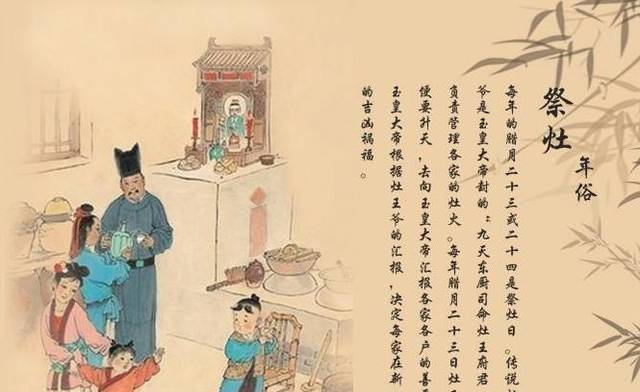 祭灶
年俗
每年的腊月二十三或二十四是祭灶日。传说
爷是玉皇大帝封的“九天东厨司命灶王府君
负责管理各家的灶火。每年腊月二十三日灶
便要升天，去向玉皇大帝汇报各家各户的善
玉皇大帝根据灶王爷的汇报，决定每家在新
的吉凶祸福。